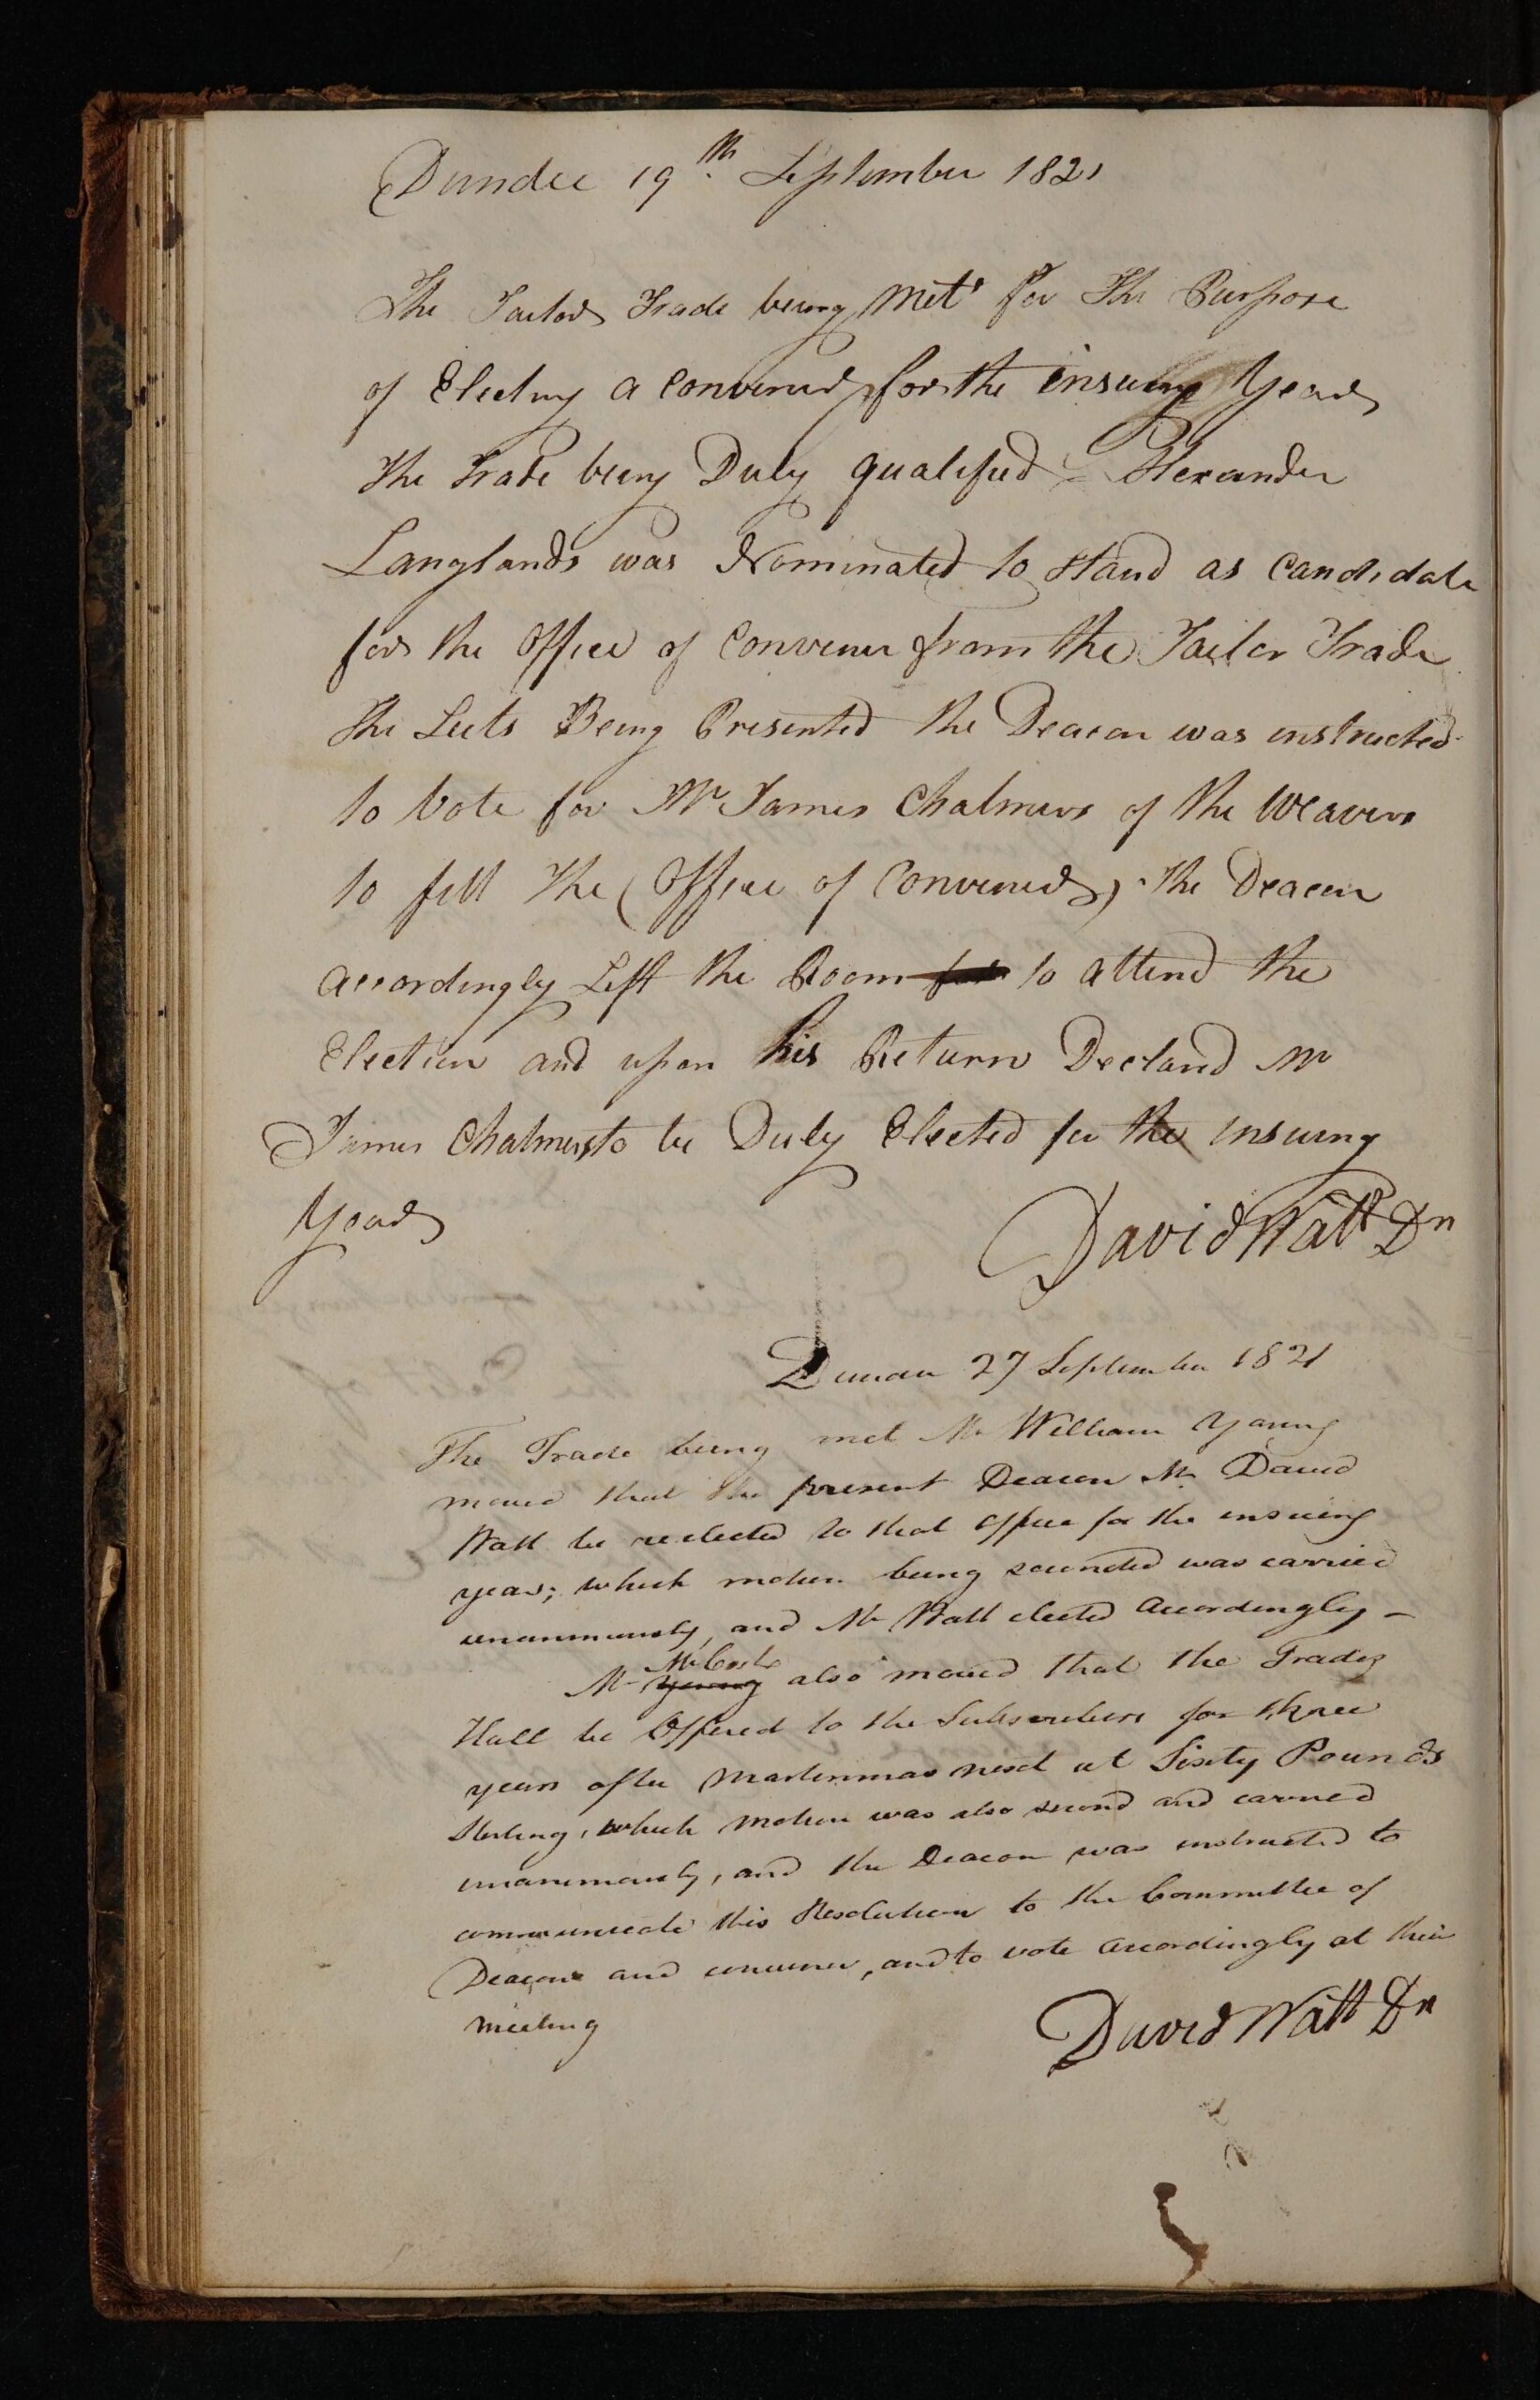 Dundee 19th September 1821
The Tailor Trade being Met for The Purpose
of Electing a Convener for the insuing Year
the Trade being Duly qualified Alexander
Langlands was Nominated to Stand as Candidate
for the Office of Convener from the Tailor Trade
The Leets Being Presented the Deacon was instructed
to Vote for Mr James Chalmers of the Weavers
to fill The Office of Convener, the Deacon
accordingly Left the Room for to attend the
Election and upon his Return Declared Mr
James Chalmers to be Duly Elected for the insuing
Year
David Watt Dn
Dundee 27 September 1821
The Trade being met Mr William Young
moved that the present Deacon Mr David
Watt be reelected to that office for the insuing
year; which motion being seconded was carried
unanimously, and Mr Watt elected accordingly –
Mr Young also moved that the Trades
Hall be Offered to the Subscribers for three
years after Martinmas next at Sixty Pounds
Sterling, which motion was also second and carried
unanimously, and the Deacon was instructed to
communicate this Resolution to the Committee of
Deacons and convener, and to vote accordingly at their
meeting
David Watt Dn